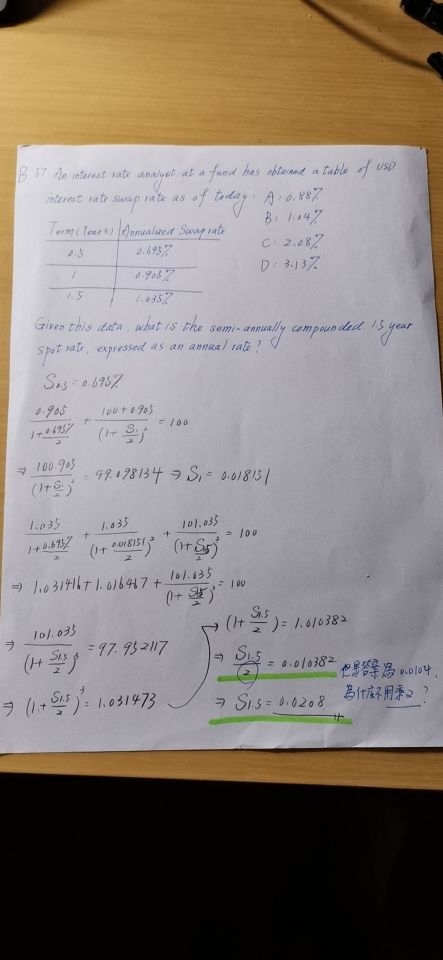 B 57. An interest rate analyst at a fund has obtained a table of USD
interest rate swap rate as of today.
A: 0.88%
B: 1.04%
C: 2.08%
D: 3.13%
Term (Years) Annualized Swap rate
0.5 0.695%
1 0.905%
1.5 1.035%
Given this data, what is the semi-annually compounded 1.5 year
spot rate, expressed as an annual rate?
S0.5 = 0.695%
0.905/(1+0.695%/2) + (100+0.905)/(1+S1/2)² = 100
⇒ 100.905/(1+S1/2)² = 99.098134 ⇒ S1 = 0.018151
1.035/(1+0.695%/2) + 1.035/(1+0.018151/2)² + 101.035/(1+S1.5/2)³ = 100
⇒ 1.031416 + 1.016467 + 101.035/(1+S1.5/2)³ = 100
⇒ 101.035/(1+S1.5/2)³ = 97.952117
⇒ (1+S1.5/2)³ = 1.031473
→ (1+S1.5/2) = 1.010382
⇒ S1.5/2 = 0.010382
但是答案為 0.0104,
為什麼不用乘2?
⇒ S1.5 = 0.0208 #